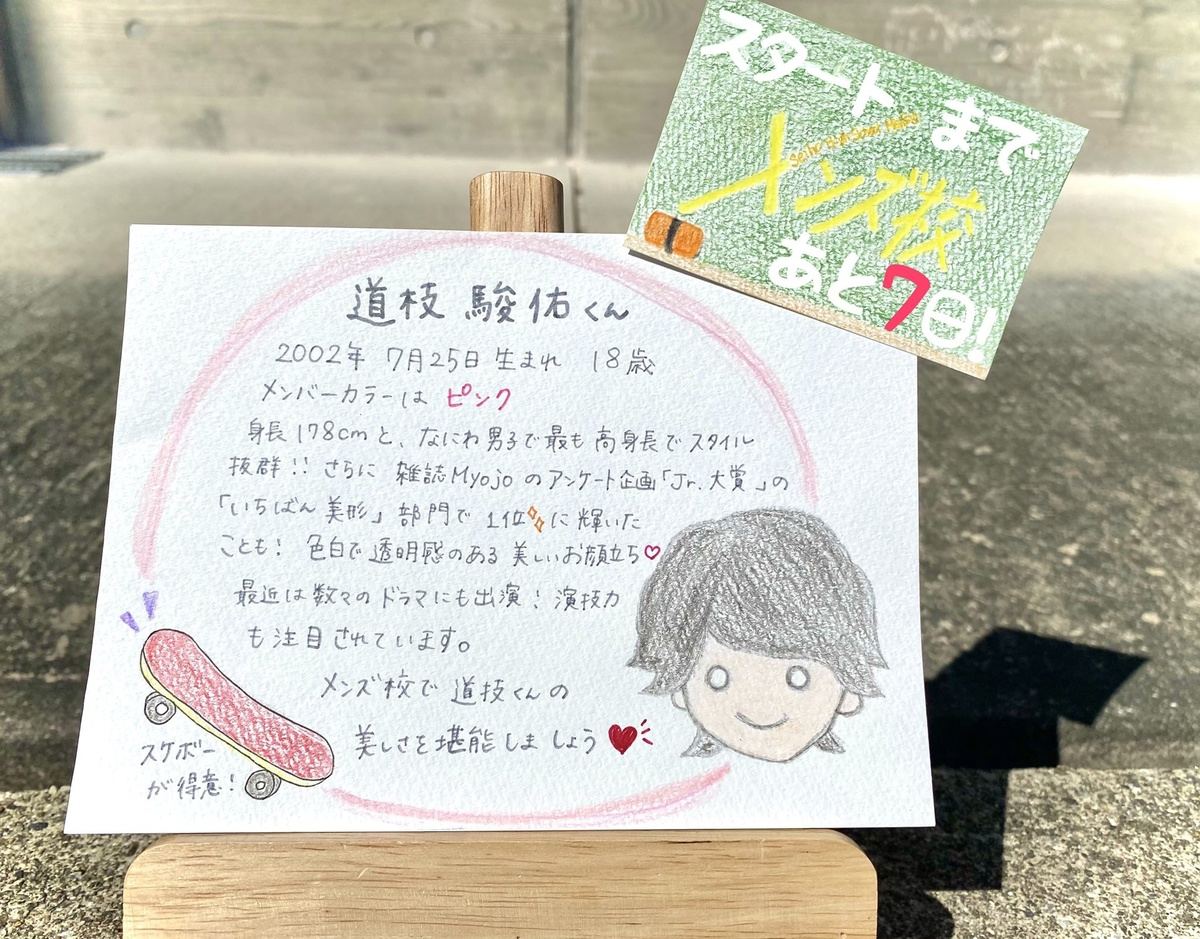 スタートまで
Seiho High School Men's
メンズ校
あと7日!
道枝 駿佑くん
2002年 7月25日生まれ 18歳
メンバーカラーは ピンク
身長178cmと、なにわ男子で最も高身長でスタイル
抜群!! さらに 雑誌Myojoのアンケート企画「Jr.大賞」の
「いちばん美形」部門で 1位に輝いた
ことも! 色白で透明感のある 美しいお顔立ち♡
最近は数々のドラマにも出演! 演技力
も注目されています。
メンズ校で 道技くんの
美しさを堪能しましょう
スケボー
が得意!